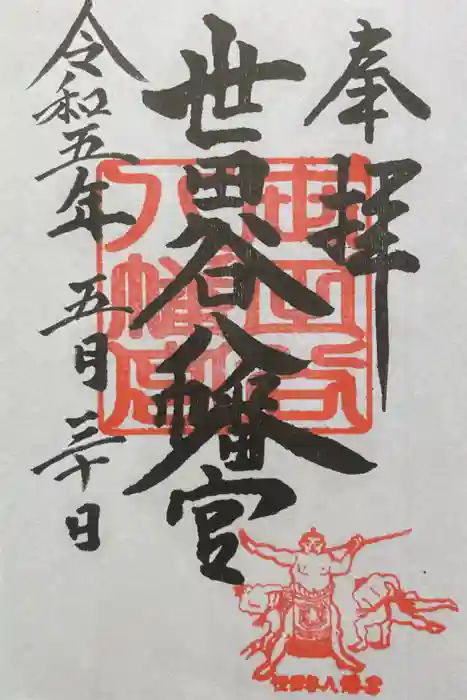 奉拝
世田谷八幡宮
令和五年 五月 三十日
世田谷
八幡宮
世田谷八幡宮